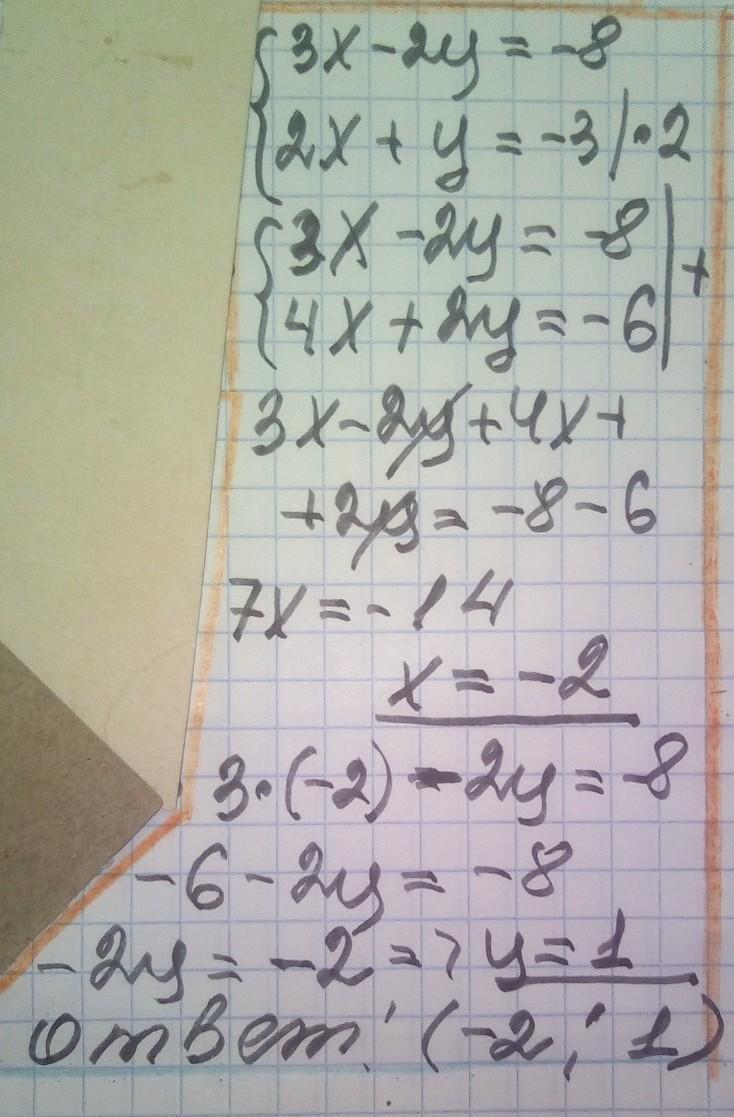 {3x - 2y = -8
{2x + y = -3 | · 2
{3x - 2y = -8 | +
{4x + 2y = -6 |
3x - 2y + 4x +
+ 2y = -8 - 6
7x = -14
x = -2
3 · (-2) - 2y = -8
-6 - 2y = -8
-2y = -2 => y = 1
Ответ: (-2; 1)